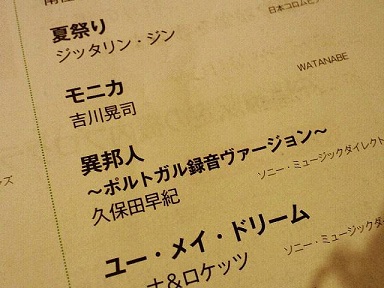 日本コロムビ
夏祭り
ジッタリン・ジン
WATANABE
モニカ
吉川晃司
異邦人
〜ポルトガル録音ヴァージョン〜
ソニー・ミュージックダイレクト
久保田早紀
ユー・メイ・ドリーム
ソニー・ミュージックダ
ナ&ロケッツ
ズ